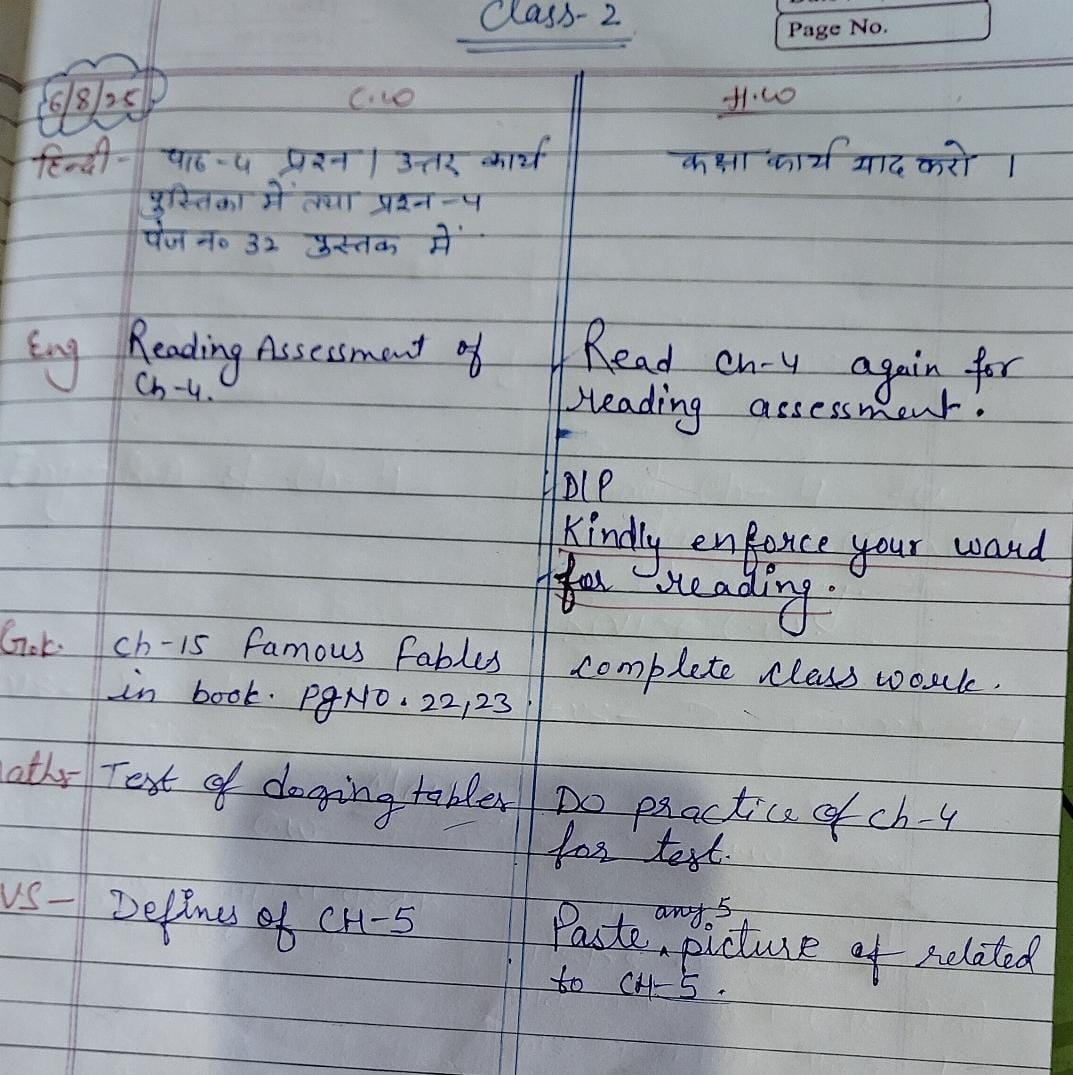 Class-2
Page No.
6/8/25
C.W
H.W
हिन्दी - पाठ-५ प्रश्न / उत्तर कार्य
पुस्तिका में तथा प्रश्न-५
पेज न० 32 पुस्तक में
कक्षा कार्य याद करो ।
Eng Reading Assessment of
Ch-4.
Read Ch-4 again for
reading assessment.
DIP
Kindly enforce your ward
for reading.
G.k. Ch-15 Famous Fables
in book. Pg NO. 22,23.
complete class work.
aths- Test of doging tables
DO practice of ch-4
for test.
VS - Defines of CH-5
Paste any 5 picture of related
to CH-5.